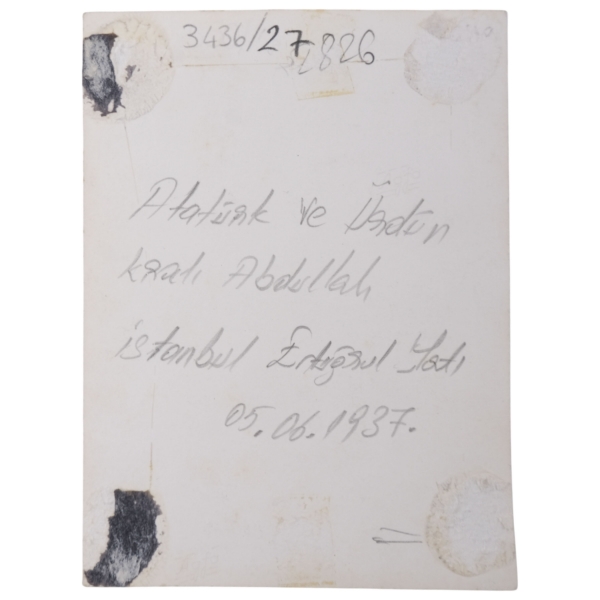 3436/27
32826
Atatürk ve Ürdün
kralı Abdullah
istanbul Ertuğrul Yatı
05.06.1937.